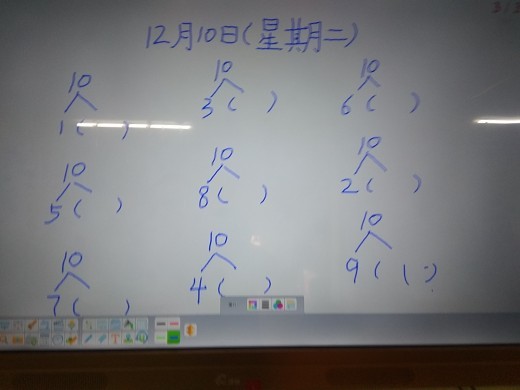 12月10日(星期二)
10 10 10
1( ) 3( ) 6( )
10 10 10
5( ) 8( ) 2( )
10 10 10
7( ) 4( ) 9( 1 )